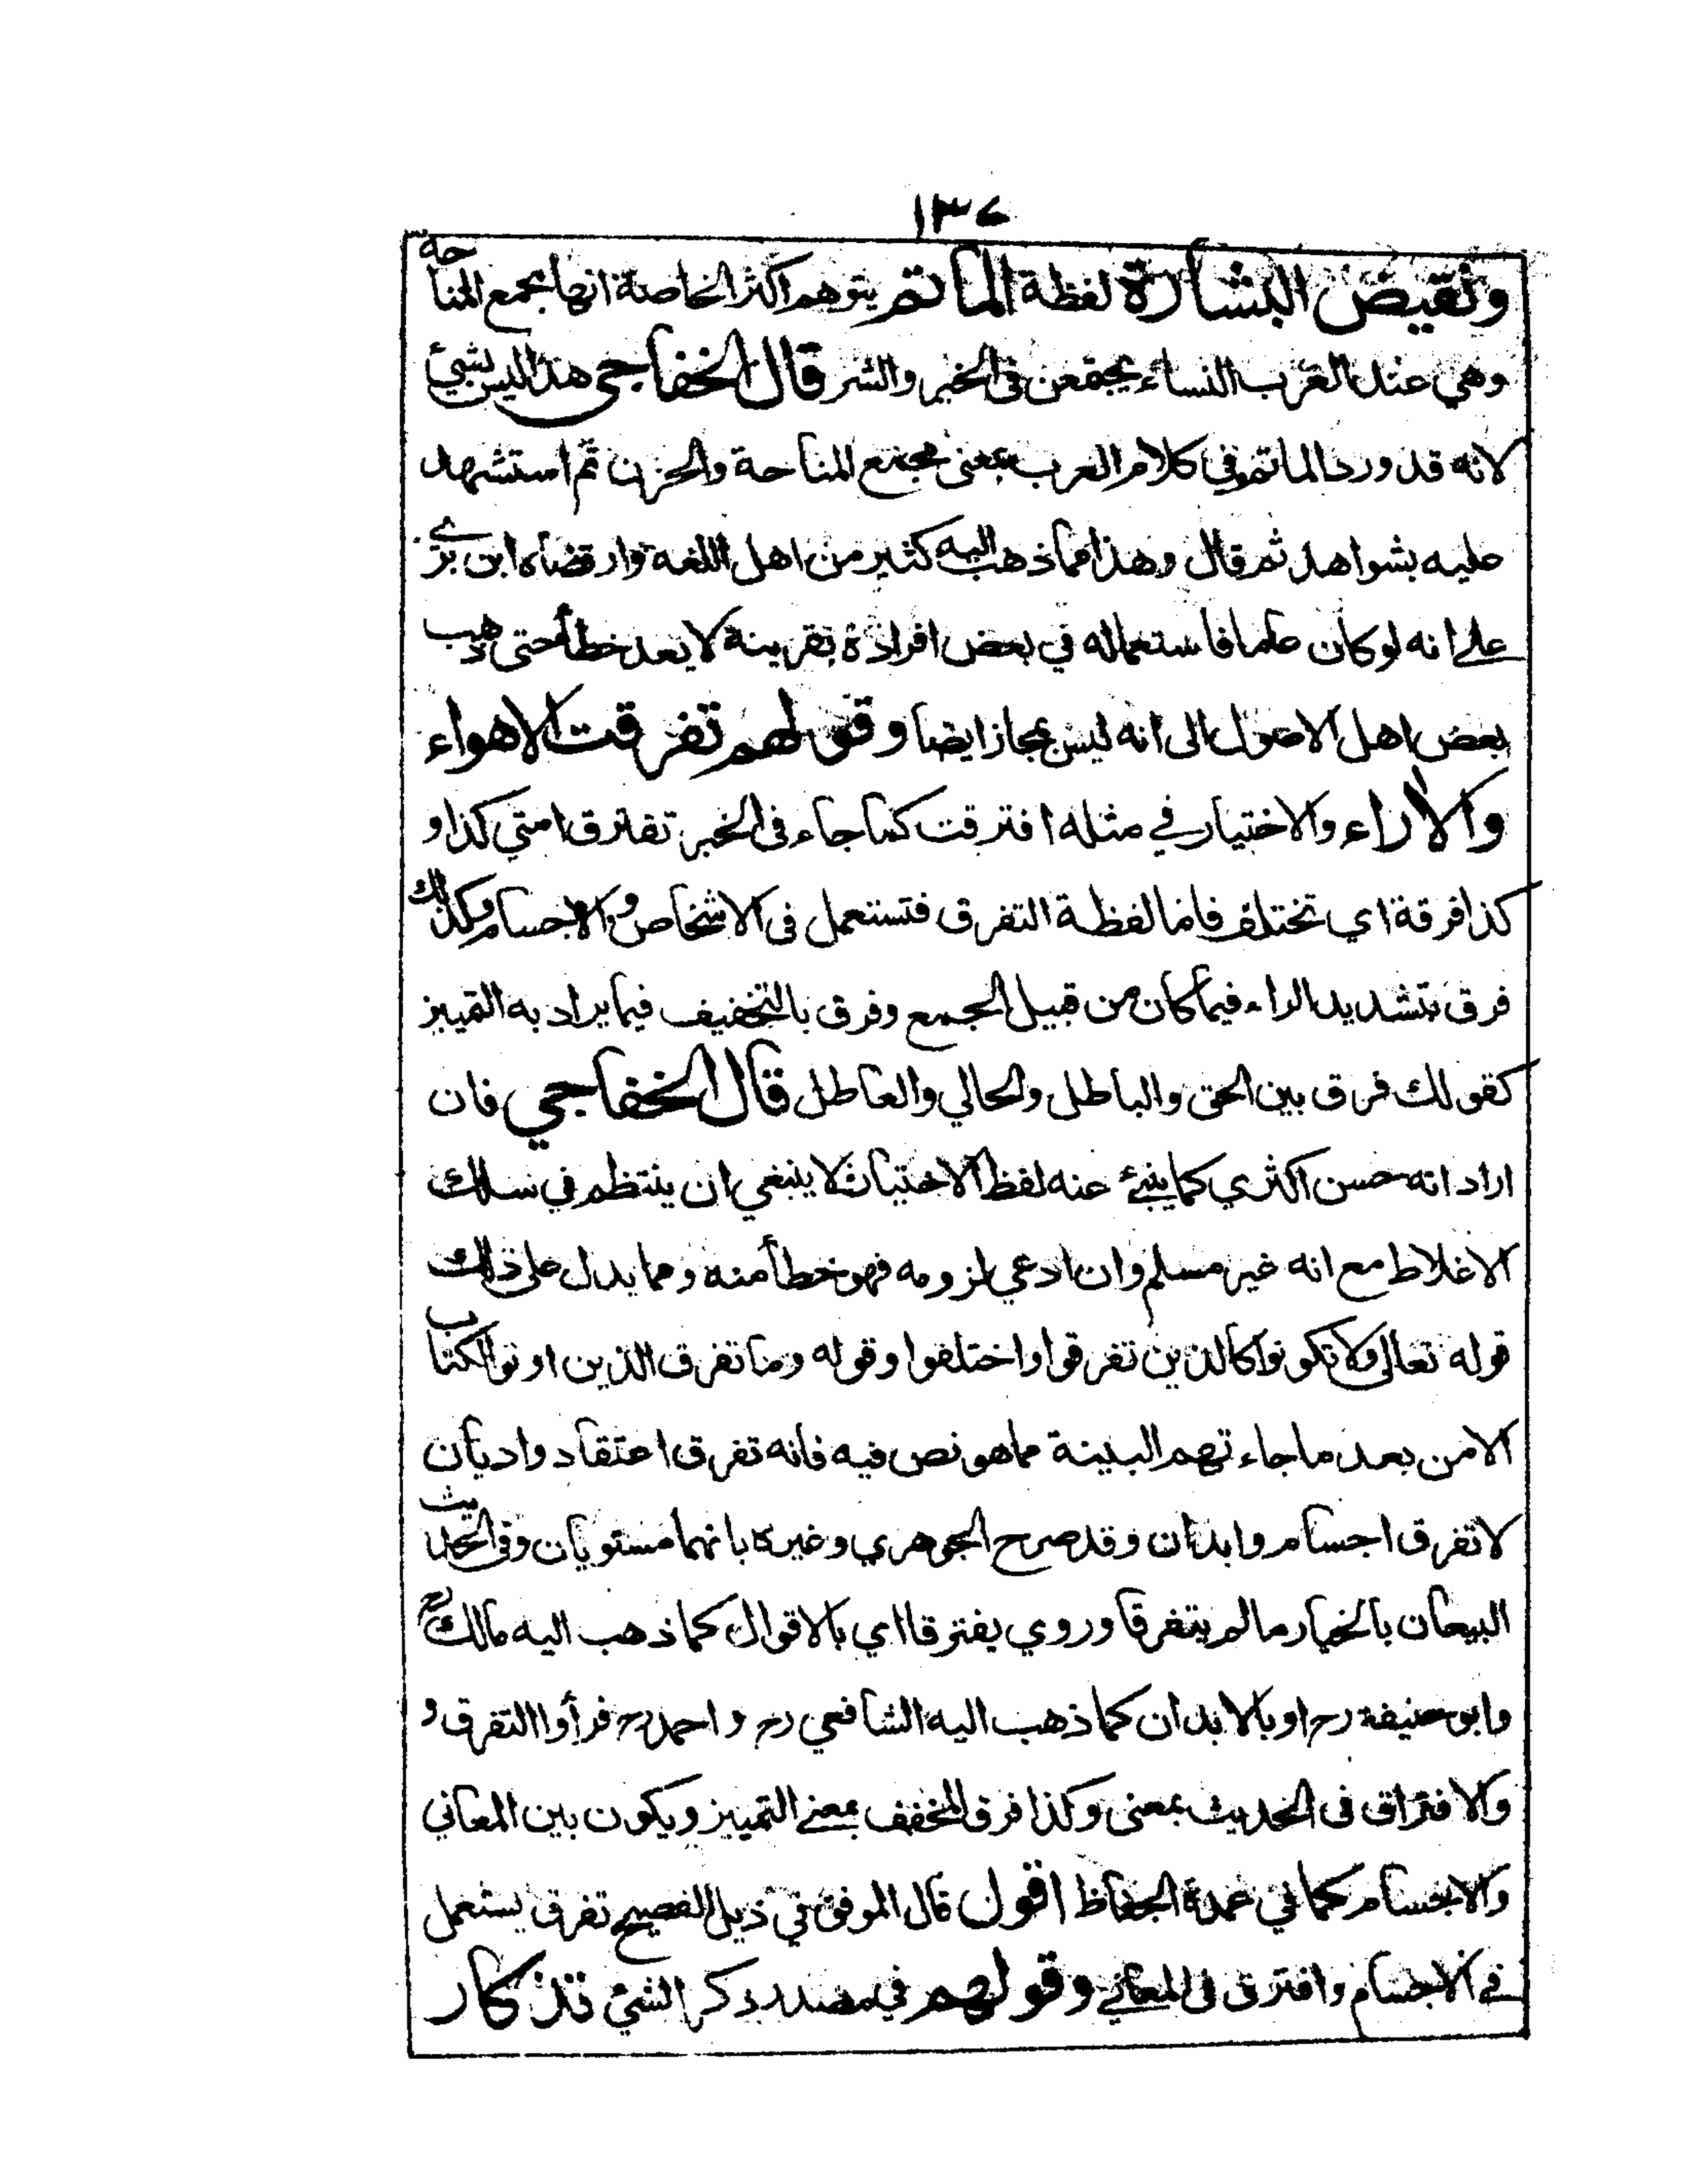 ١٣٧
ونقيض البشارة لفظة الماتم يتوهم اكثر الخاصة انها مجمع المناحة
وهي عند العرب النساء يجتمعن في الخير والشر قال الخفاجي هذا ليس بشيئ
لانه قد ورد الماتم في كلام العرب بمعنى مجتمع المناحة والحزن ثم استشهد
عليه بشواهد ثم قال وهذا مما ذهب اليه كثير من اهل اللغة وارتضاه ابن بري
على انه لو كان عاما فاستعماله في بعض افراده بقرينة لا يعد خطأ حتى ذهب
بعض اهل الاصول الى انه ليس بمجاز ايضا وقولهم تفرقت الاهواء
والاراء والاختيار في مثله افترقت كما جاء في الخبر تفترق امتي كذا و
كذا فرقة اي تختلف فاما لفظة التفرق فتستعمل في الاشخاص والاجسام وكذلك
فرق بتشديد الراء فيما كان من قبيل الجمع وفرق بالتخفيف فيما يراد به التمييز
كقولك فرق بين الحق والباطل والحالي والعاطل قال الخفاجي فان
اراد انه حسن اكثري كما ينبئ عنه لفظ الاختيار لا ينبغي ان ينتظم في سلك
الاغلاط مع انه غير مسلم وان ادعي لزومه فهو خطأ منه ومما يدل على ذلك
قوله تعالى ولا تكونوا كالذين تفرقوا واختلفوا وقوله وما تفرق الذين اوتوا الكتاب
الا من بعد ما جاءتهم البينة مما هو نص فيه فانه تفرق اعتقاد واديان
لا تفرق اجسام وابدان وقد صرح الجوهري وغيره بانهما مستويان وفي الحديث
البيعان بالخيار ما لم يتفرقا وروي يفترقا اي بالاقوال كما ذهب اليه مالك رح
وابو حنيفة رح او بالابدان كما ذهب اليه الشافعي رح واحمد رح فرأوا التفرق و
والافتراق في الحديث بمعنى وكذا فرق المخفف بمعنى التمييز ويكون بين المعاني
والاجسام كما في عمدة الحفاظ اقول قال الموفق في ذيل الفصيح تفرق يستعمل
في الاجسام وافترق في المعاني وقولهم في مصدر ذكر الشئ تذكار